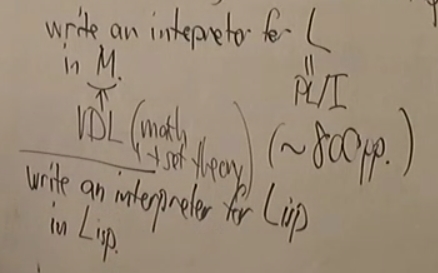 write an intepretor for L
in M. || PL/I
↑
VDL (math + set theory) (~800pp.)
write an interpreter for Lisp
in Lisp.